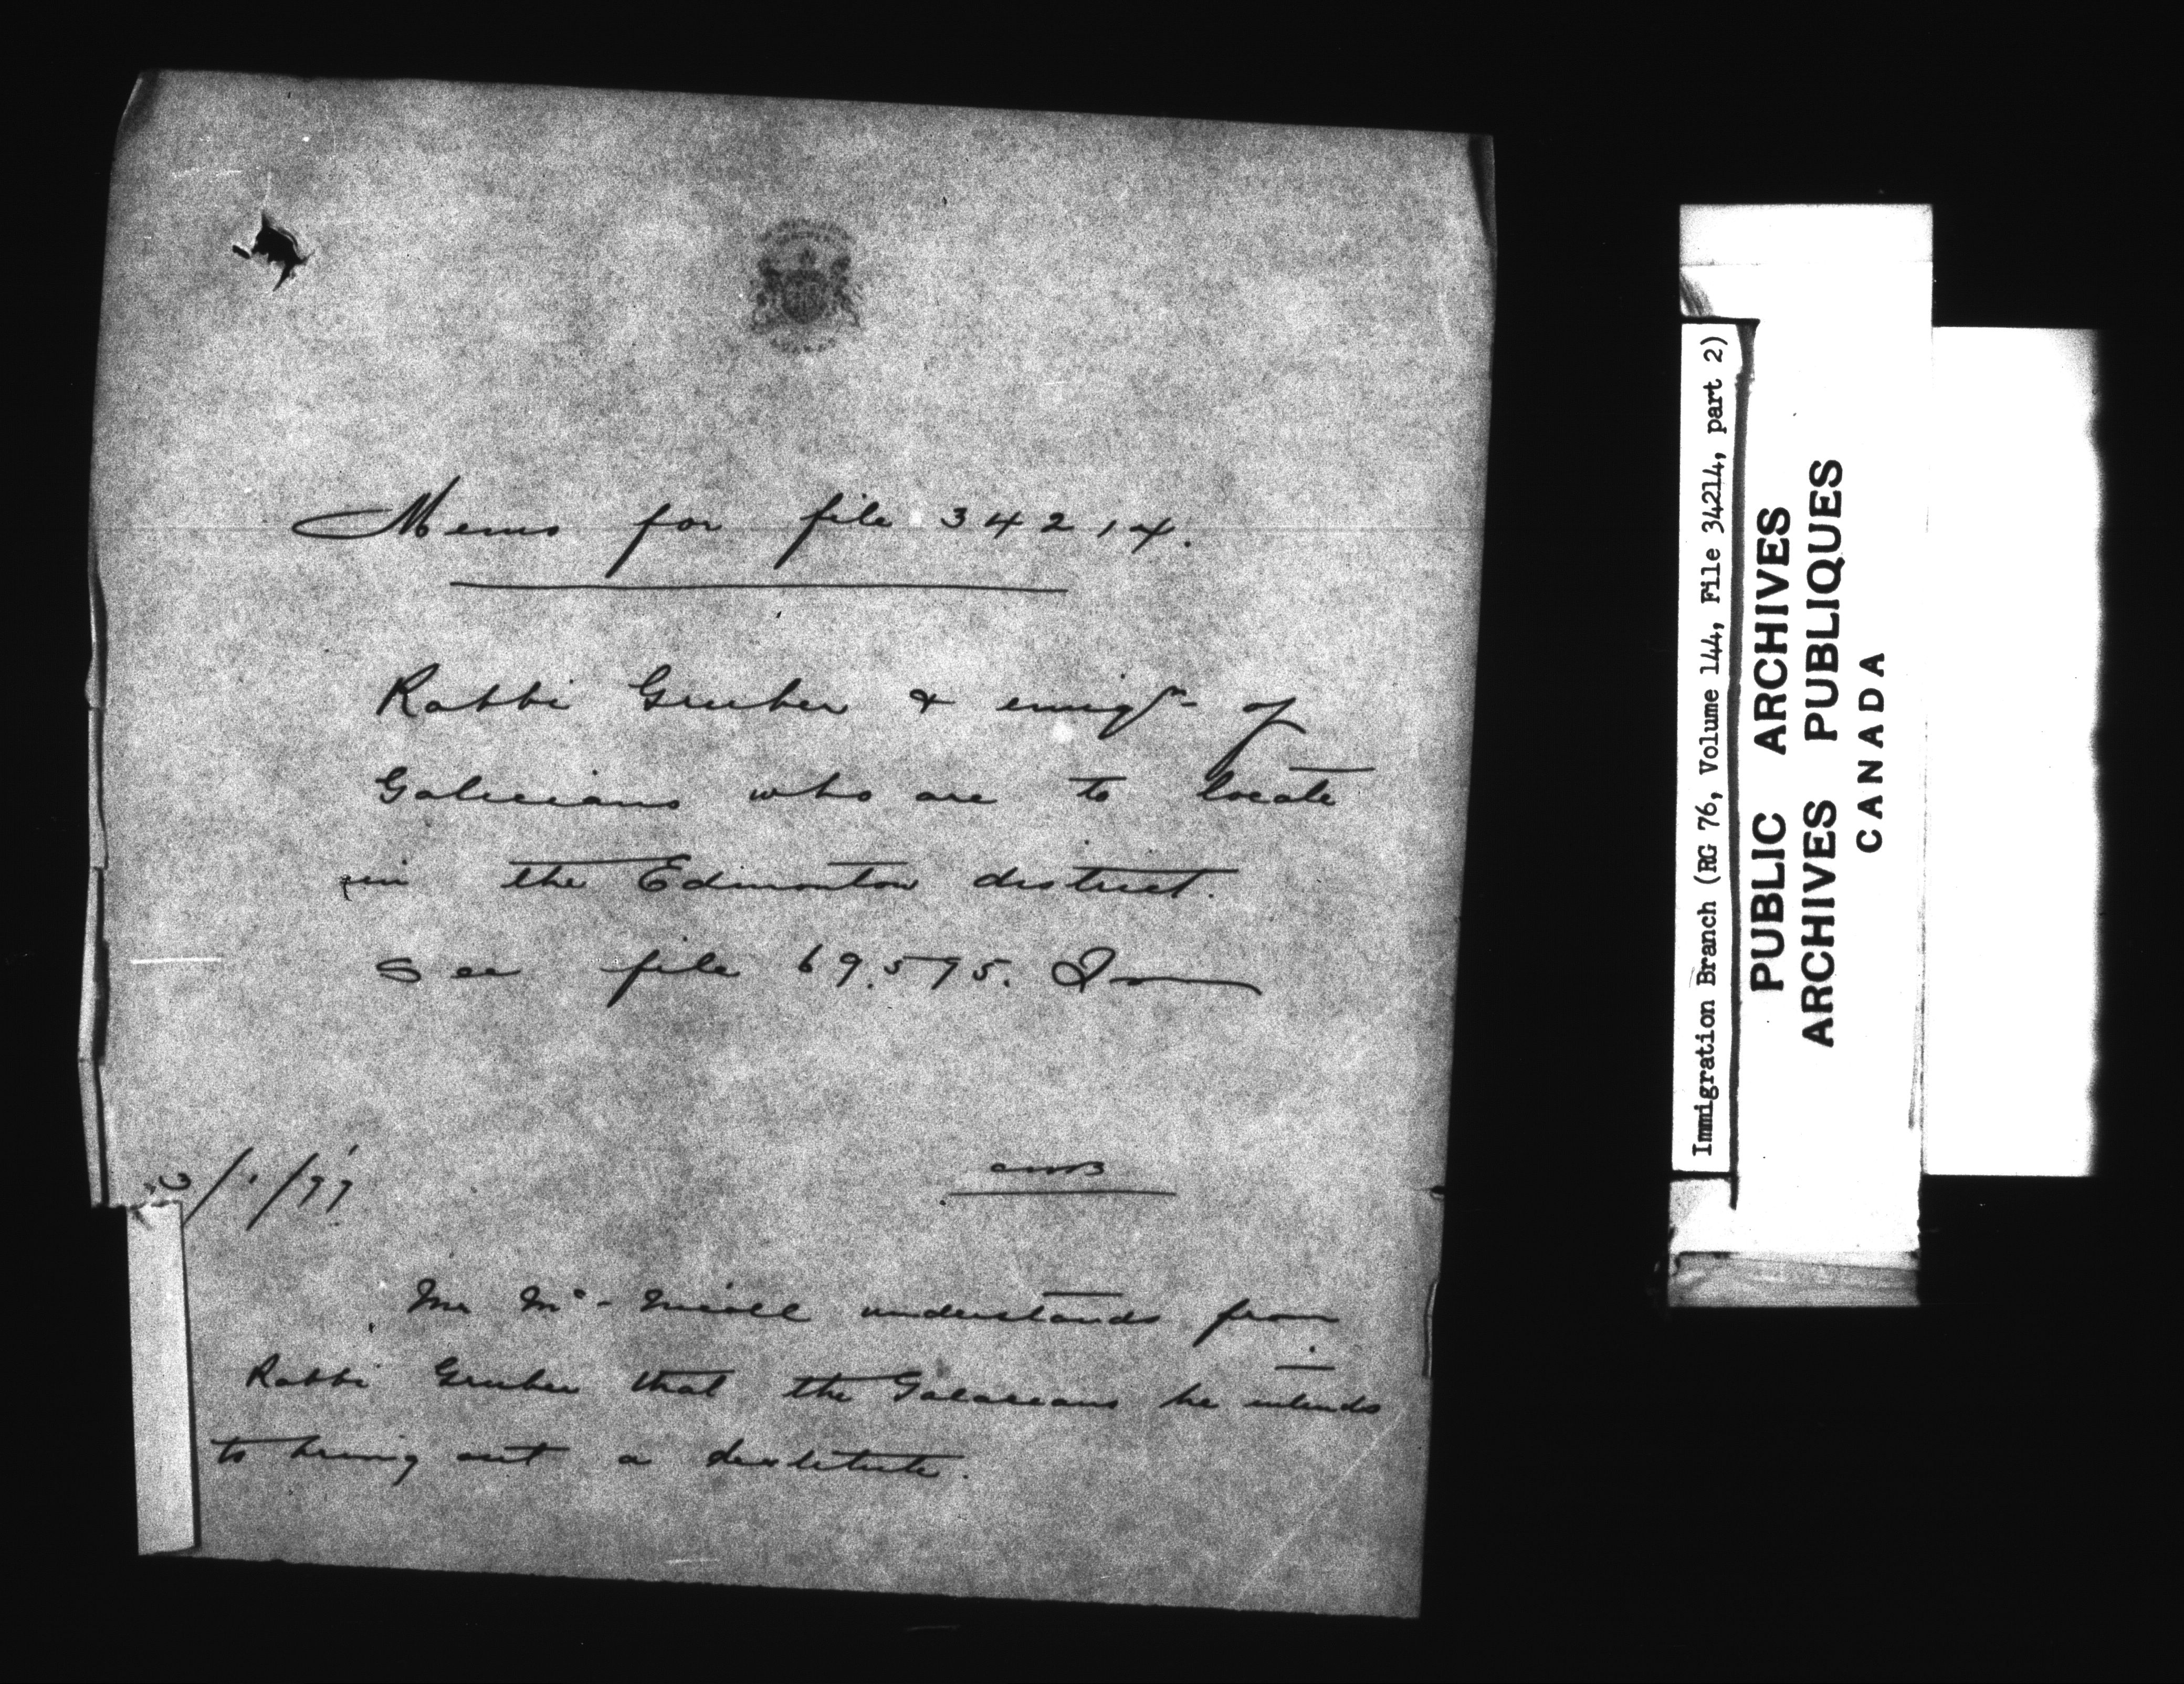 Memo for file 34214.
Rabbi Gruber & emigrn of
Galicians who are to locate
in the Edmonton district.
See file 69.595. Im
/1/99
Mr Mc-Nicoll understands from
Rabbi Gruber that the Galacians he intends
to bring out a destitute.
Immigration Branch (RG 76, Volume 144, File 34214, part 2)
PUBLIC ARCHIVES
ARCHIVES PUBLIQUES
CANADA